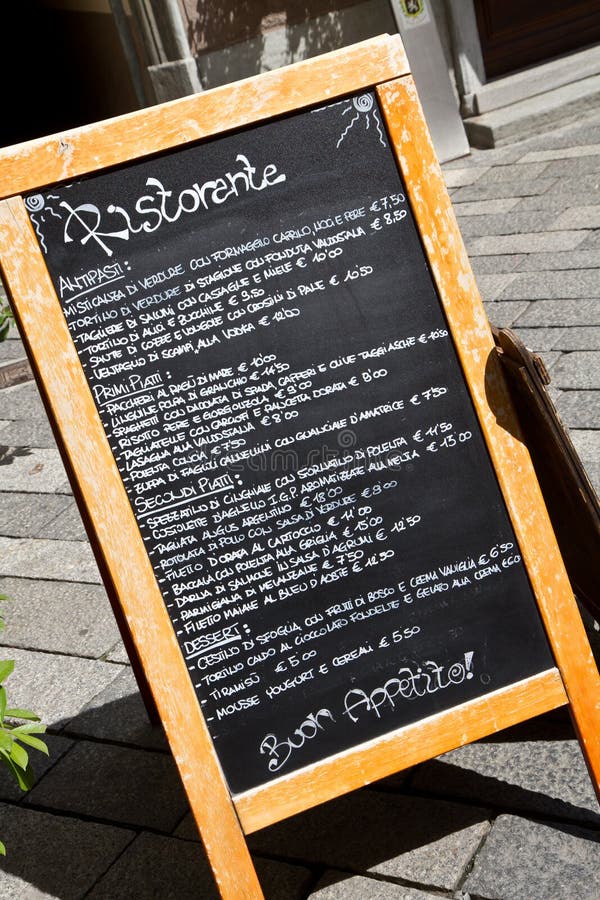 Ristorante
ANTIPASTI:
MISTICANZA DI VERDURE CON FORMAGELLO CAPRINO, NOCI E PERE € 7,50
TORTINO DI VERDURE DI STAGIONE CON FONDUTA VALDOSTANA € 8,50
- TAGLIERE DI SALUMI CON CASTAGNE E MIELE € 10'00
- TORTINO DI ALICI E ZUCCHINE € 9,50
- SAUTE DI COZZE E VONGOLE CON CROSTINI DI PANE € 10'50
- VENTAGLIO DI SCAMPI ALLA VODKA € 12'00
PRIMI PIATTI:
- PACCHERI AL RAGÙ DI MARE € 10'00
- LINGUINE POLPA DI GRANCHIO € 11'50
- SPAGHETTI CON DADOLATA DI SPADA, CAPPERI E OLIVE TAGGIASCHE € 10'50
- RISOTTO PERE E GORGONZOLA € 9'00
- TAGLIATELLE CON CAROTE E PANCETTA DORATA € 8'00
- LASAGNA ALLA VALDOSTANA € 8'00
- POLENTA CONCIA € 7'50
- ZUPPA DI CON GUANCIALE D'AMATRICE € 7'50
SECONDI PIATTI:
- SPEZZATINO DI CINGHIALE CON SFORMATINO DI POLENTA € 11'50
- COSTOLETTE D'AGNELLO I.G.P. AROMATIZZATE ALLA MENTA € 13'00
- TAGLIATA ANGUS ARGENTINO € 18'00
- ROTOLATA DI POLLO CON SALSA DI VERDURE € 8'00
- FILETTO D'ORATA AL CARTOCCIO € 11'00
- BACCALÀ CON POLENTA ALLA GRIGLIA € 15'00
- DARNA DI SALMONE IN SALSA D'AGRUMI € 12'50
- PARMIGIANA DI MELANZANE € 7'50
- FILETTO MAIALE AL BLEU D'AOSTE € 12'50
DESSERT:
- CESTINO DI SFOGLIA CON FRUTTI DI BOSCO E CREMA VANIGLIA € 6'50
- TORTINO CALDO AL CIOCCOLATO FONDENTE E GELATO ALLA CREMA 6'00
- TIRAMISÙ € 5'00
- MOUSSE YOUGURT E CEREALI € 5'50
Buon Appetito!